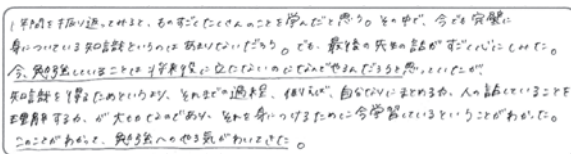 1年間を振り返ってみると、ものすごくたくさんのことを学んだと思う。その中で、今でも完璧に
身についている知識というのはあまりないだろう。でも、最後の先生の話がすごく心にしみた。
今、勉強していることは将来役に立たないのになんでやるんだろうと思っていたが、
知識を得るためというより、それまでの過程、例えば、自分なりにまとめる力、人の話していることを
理解する力、が大切なのであり、それを身につけるために今学習しているということがわかった。
このことがわかって、勉強へのやる気がわいてきた。